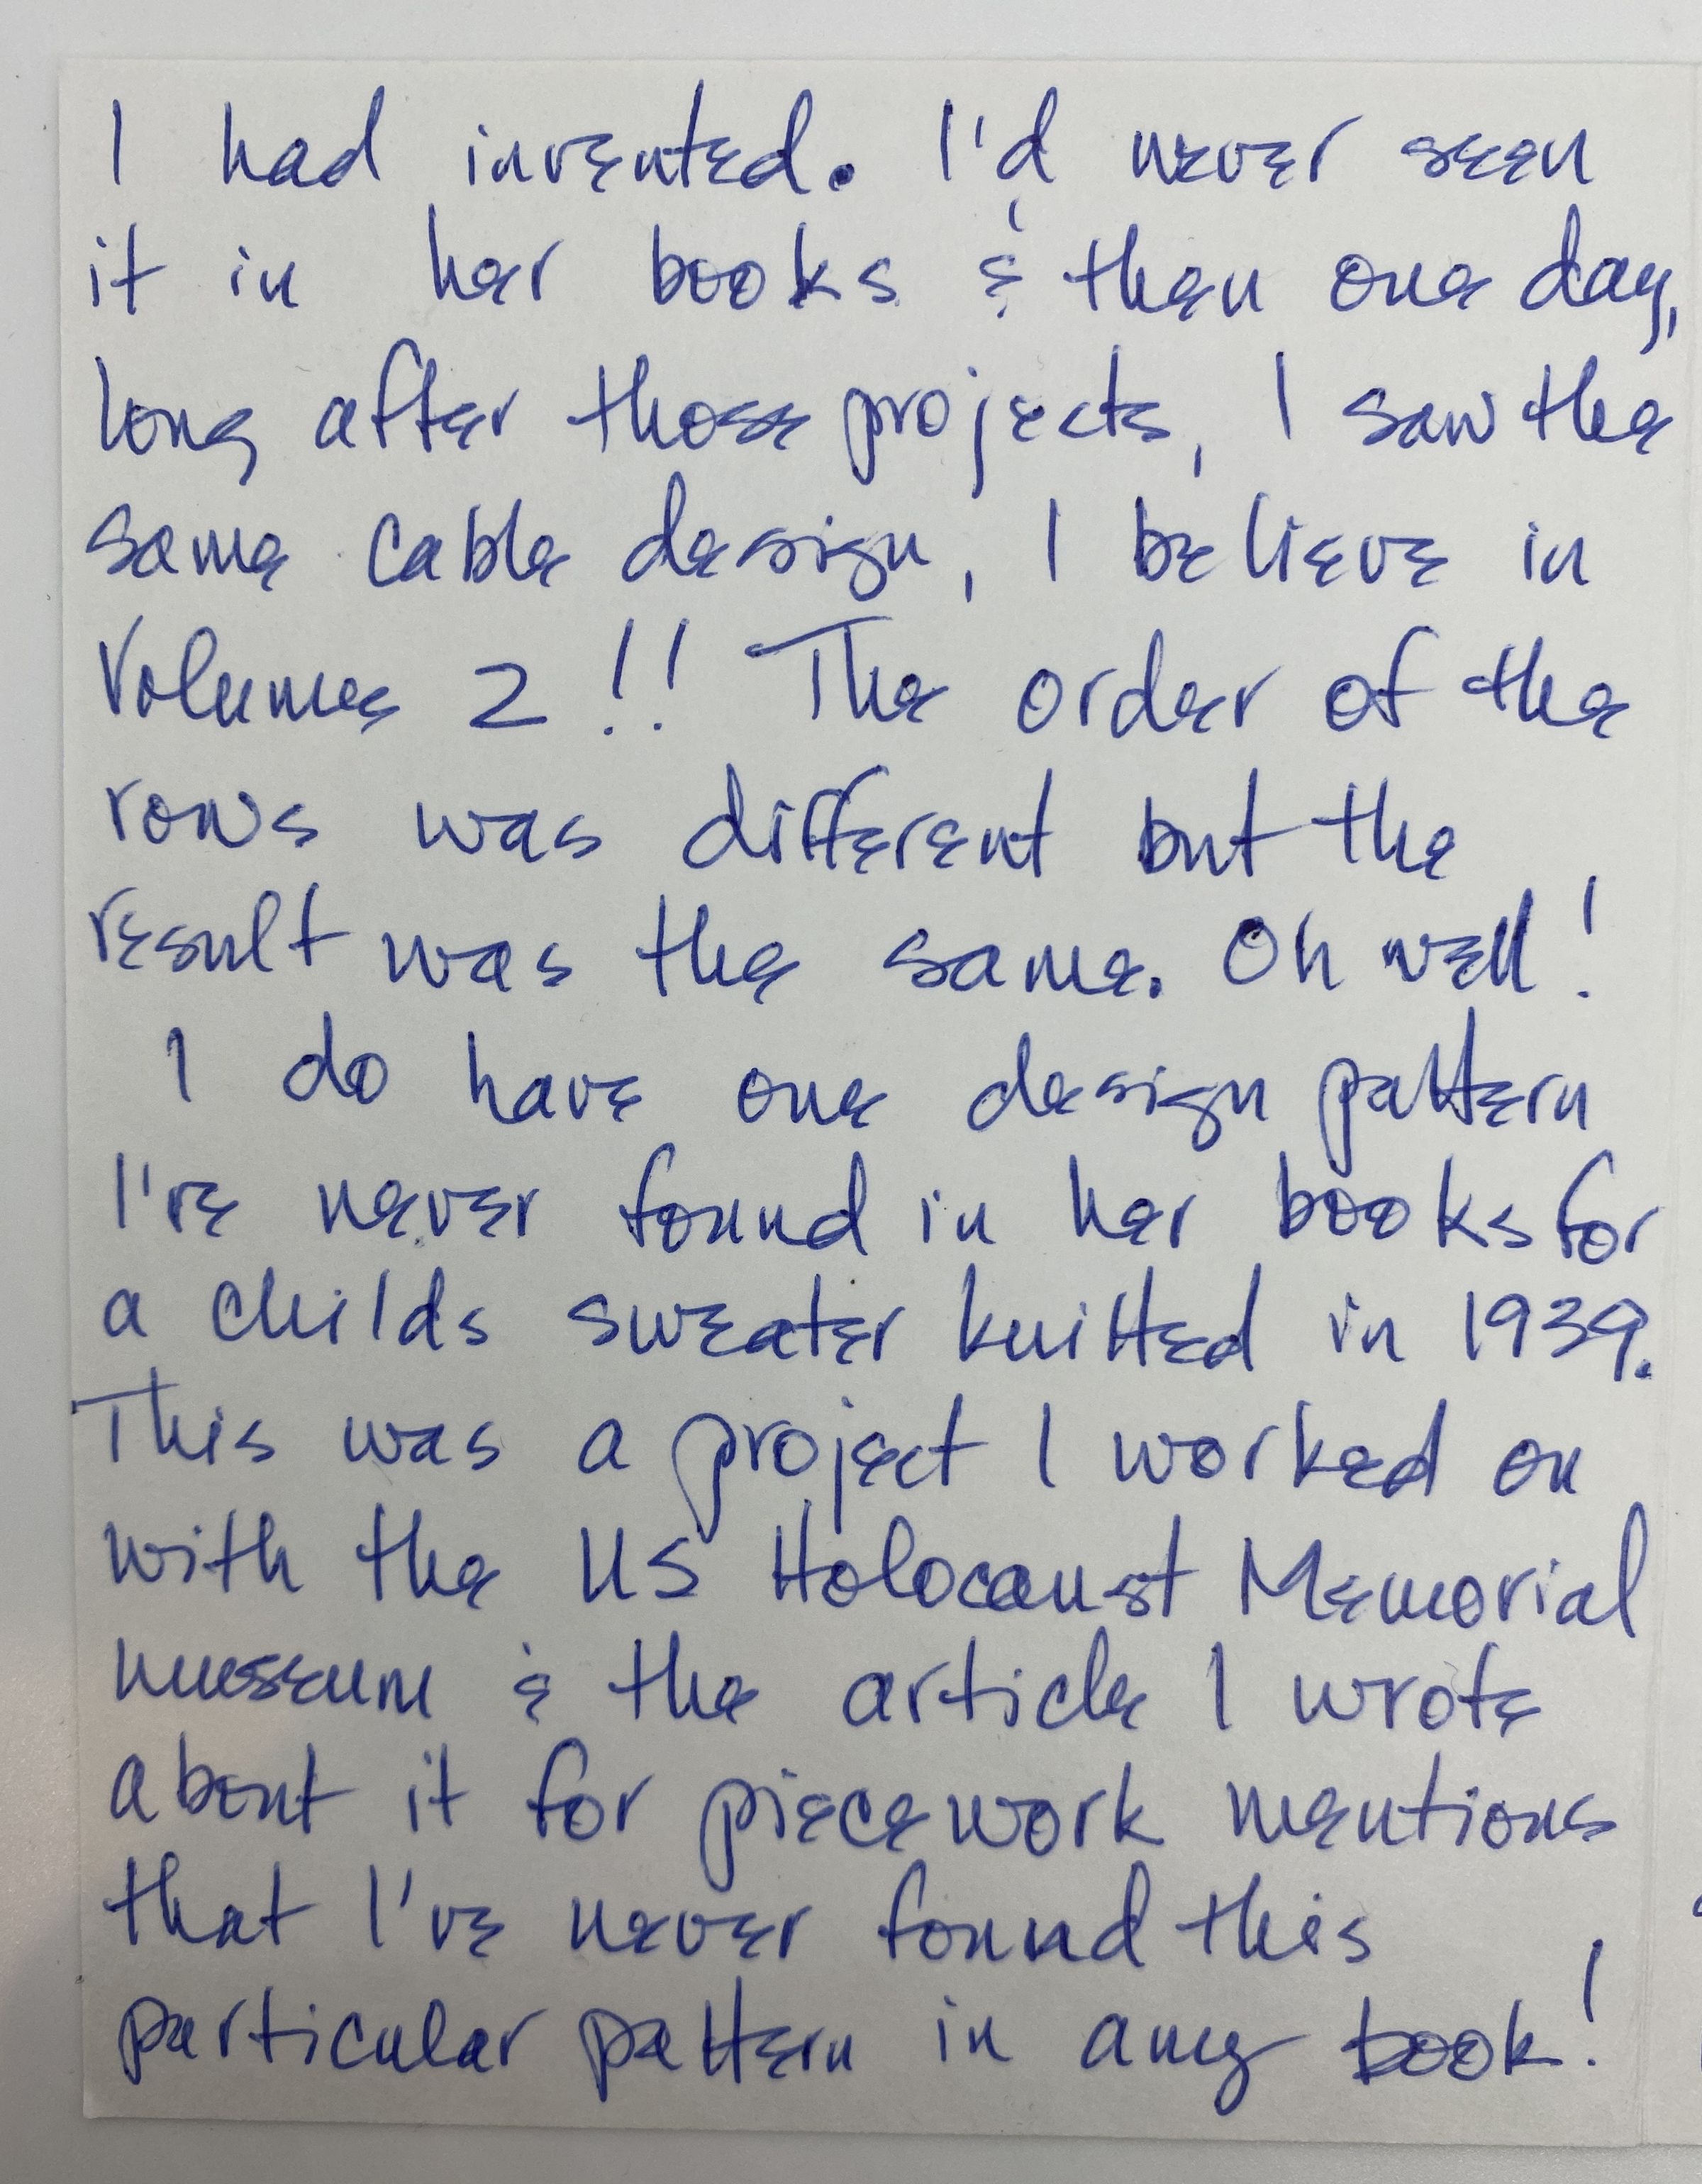 I had invented. I'd never seen
it in her books & then one day,
long after those projects, I saw the
same cable design, I believe in
Volumes 2!! The order of the
rows was different but the
result was the same. Oh well!
I do have one design pattern
I've never found in her books for
a childs sweater knitted in 1939.
This was a project I worked on
with the US Holocaust Memorial
museum & the article I wrote
about it for piecework mentions
that I've never found this
particular pattern in any book!